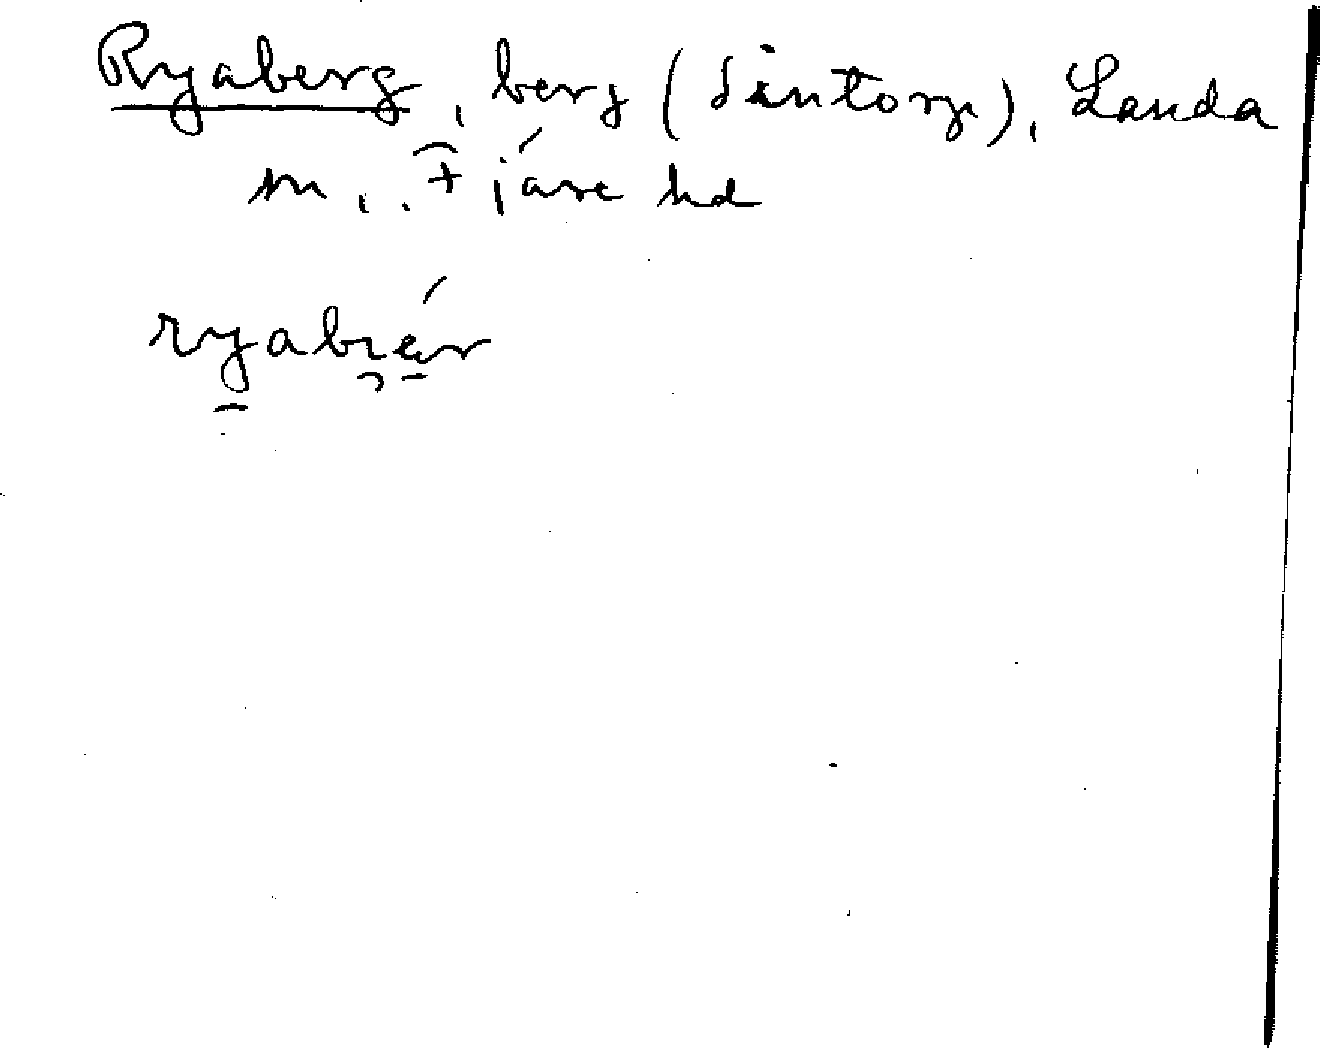 Ryaberg, berg (Sintorp), Landa
m., Fjäre hd
ryabɩ̯ér